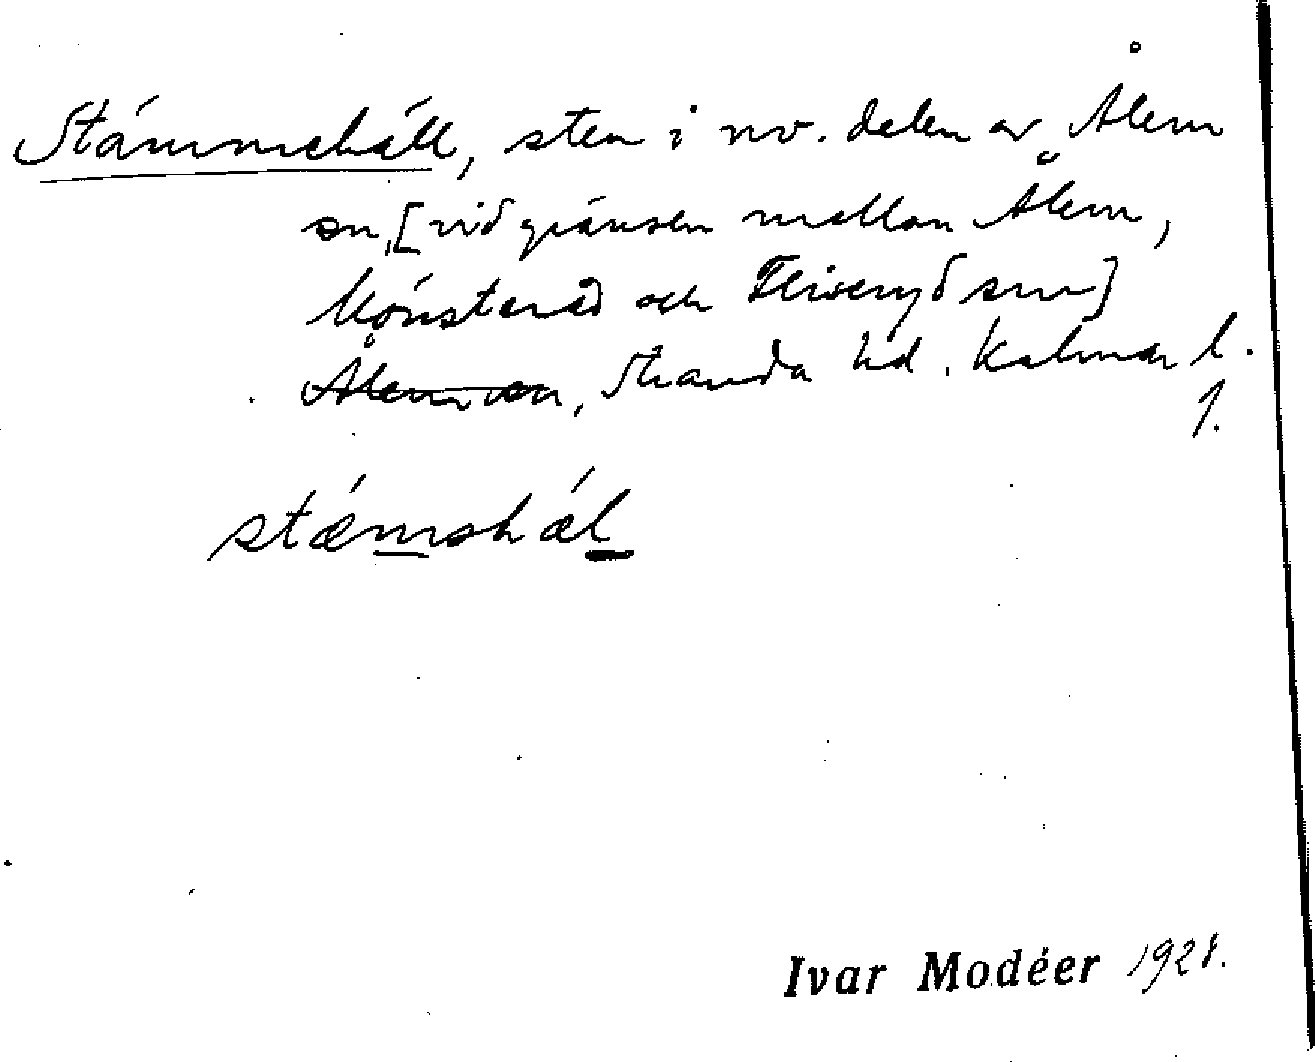 Stämmehäll, sten i nv. delen av Ålem
sn, [vid gränsen mellan Ålem,
Mönsterås och Fliseryd snr]
Ålem sn, Stranda hd. Kalmar l.
1.
stæmshæl
Ivar Modéer 1928.